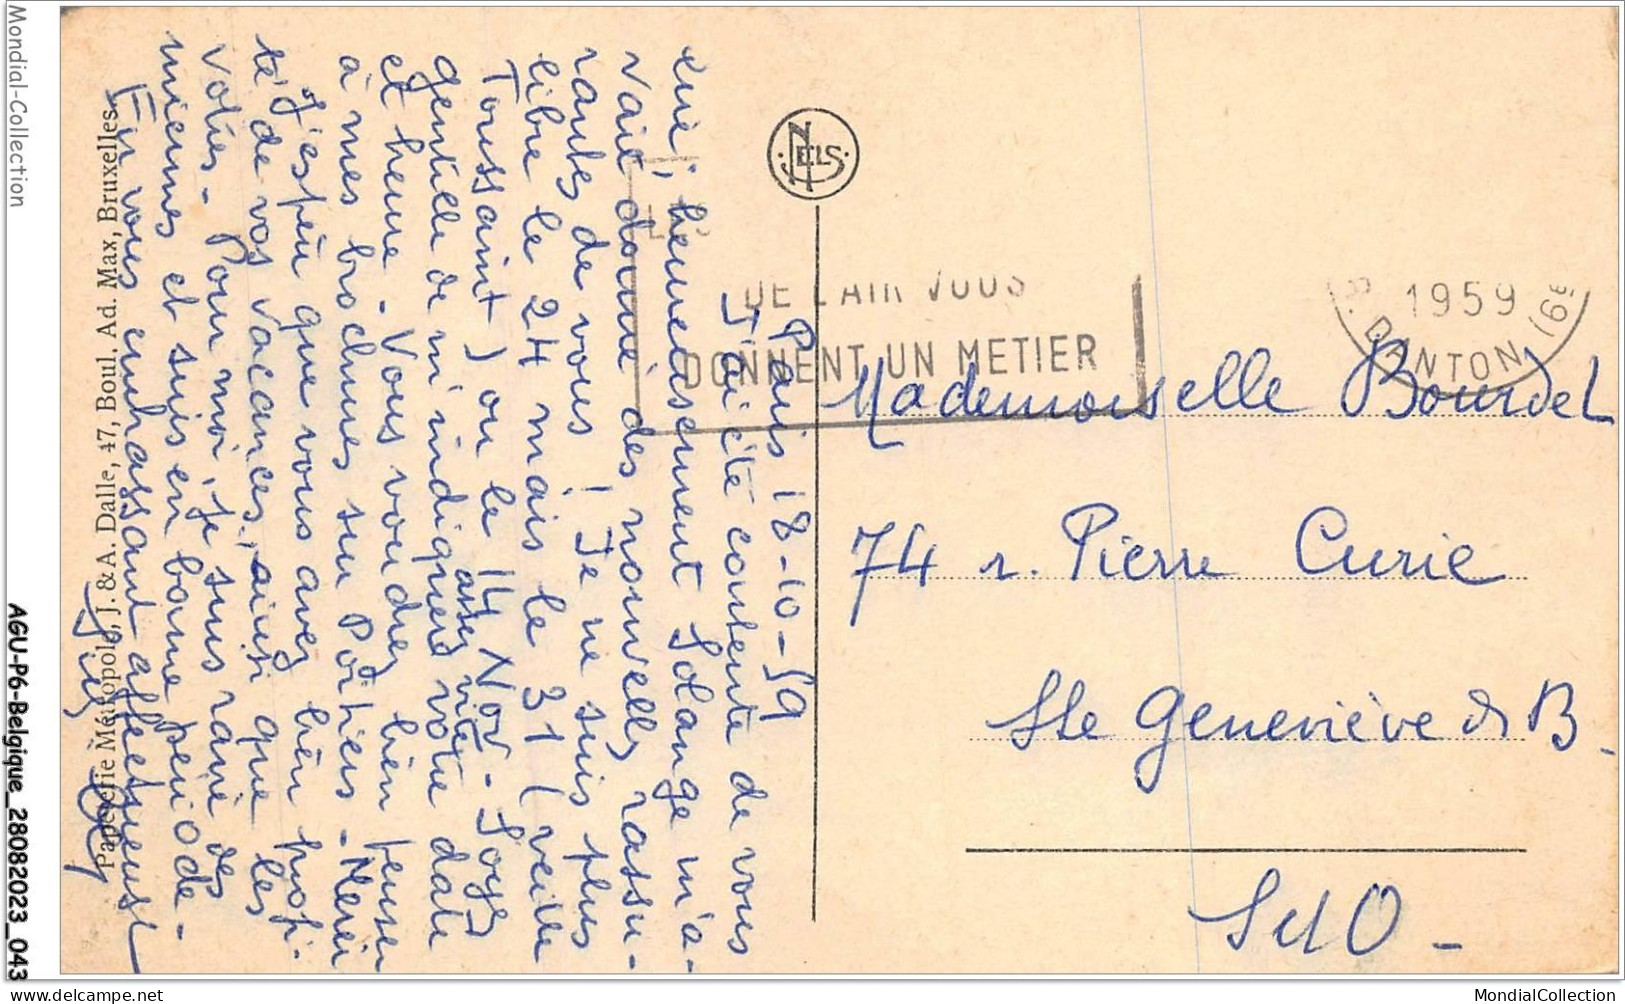 Mondial-Collection
AGU-P6-Belgique_28082023_043
Paris 18-10-59
J'ai été contente de vous
lire, heureusement Solange m'a-
vait donné des nouvelles rassu-
rantes de vous ! Je ne suis plus
libre le 24 mais le 31 (veille
Toussaint) ou le 14 Nov - Soyez
assez vite
gentille de m'indiquer votre date
et heure - Vous voudrez bien penser
à mes brochures su Poitiers - Merci
J'espère que vous avez bien profi-
té de vos vacances, ainsi que les
votres - Pour moi, je suis ravie des
miennes et suis en bonne période -
En vous embrassant affectueuse
Papeterie Métropole, J. & A. Dalle, 47, Boul. Ad. Max, Bruxelles
NELS
DE L'AIR VOUS
DONNENT UN METIER
1959
DANTON (6e)
Mademoiselle Bourdel
74 r. Pierre Curie
Ste Geneviève d B.
S et O -
MondialCollection